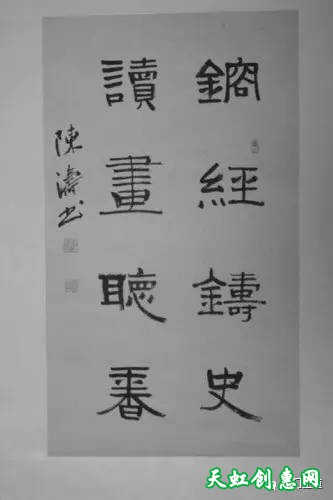 鎔經鑄史
讀畫聽香
陳濤书
天虹创惠网